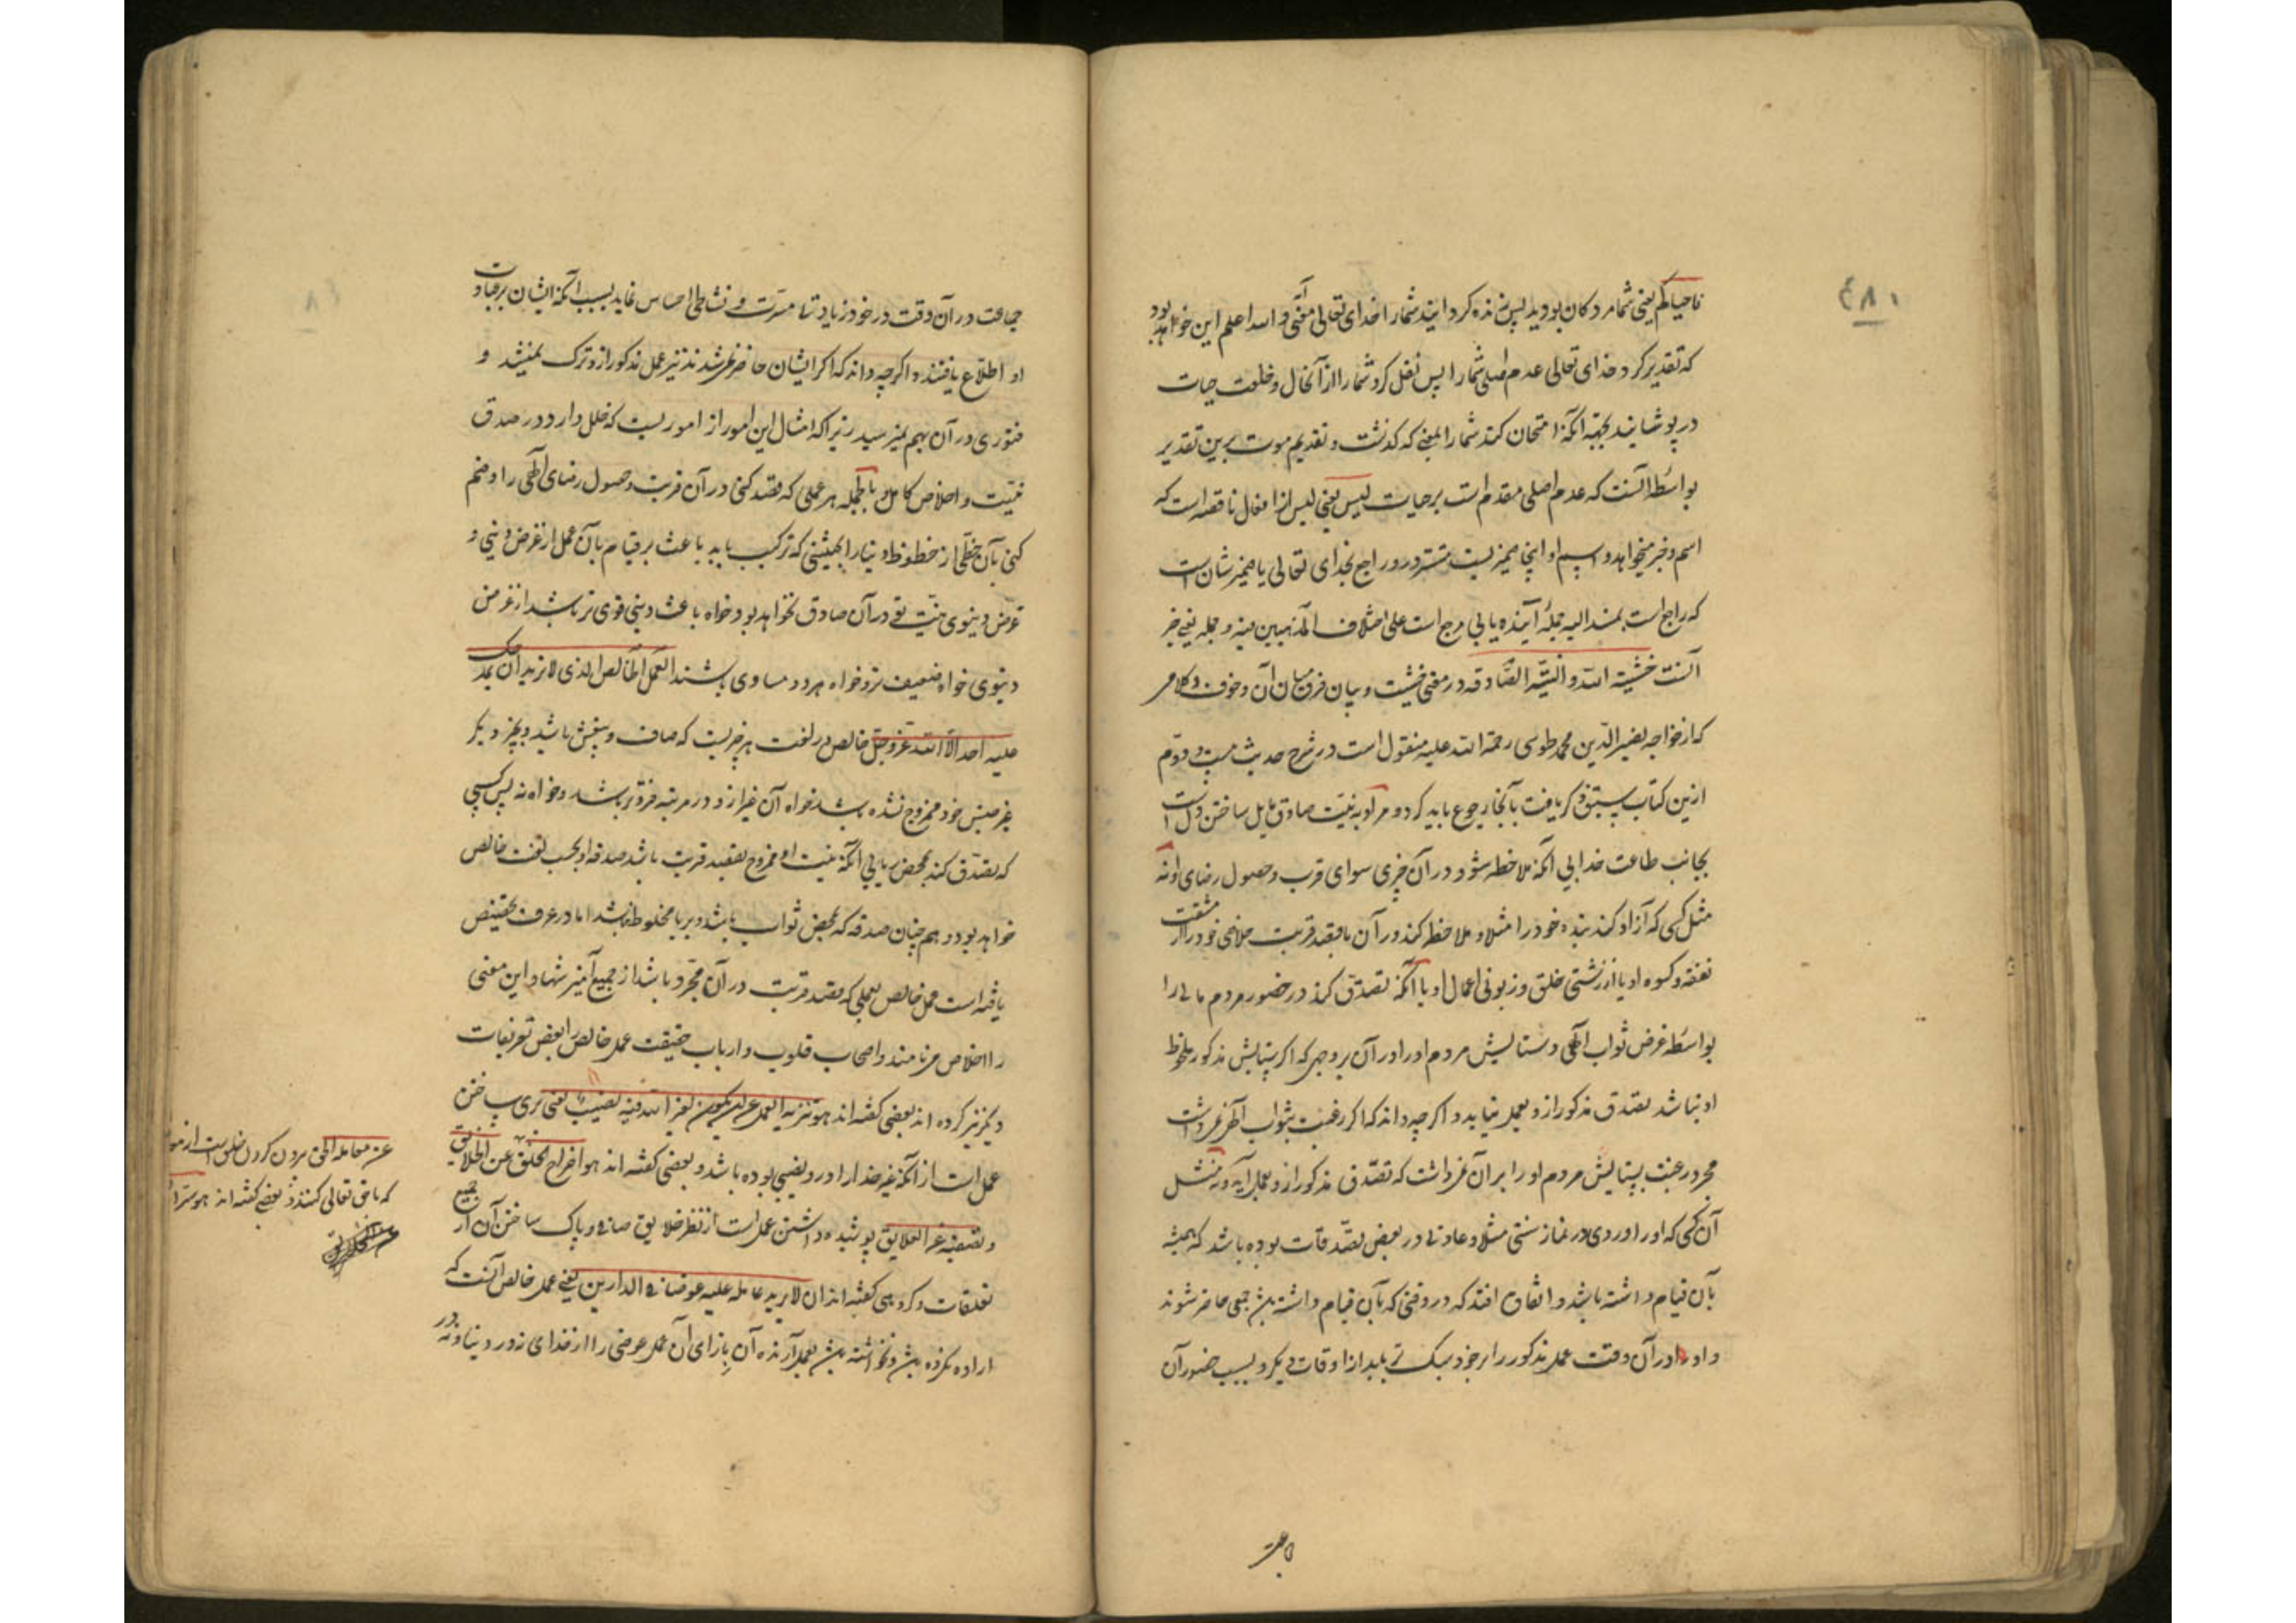 ٤٨١
فاحیاکم یعنی شما مردگان بودید پس زنده گردانید شما را خدای تعالی معنی و الله اعلم این خواهد بود
که تقدیر کرد خدای تعالی عدم اصلی شما را پس نقل کرد شما را از آنحال و خلعت حیات
در پوشانید بجهة آنکه امتحان کند شما را بمعنی که گذشت و تقدیم موت برین تقدیر
بواسطه آنست که عدم اصلی مقدم است بر حیات لیس یعنی لیس از افعال ناقصه است که
اسم و خبر میخواهد و اسم او اینجا ضمیریست مستتر در و راجع بخدای تعالی یا ضمیر شان است
که راجع است بمسند الیه جملۀ آینده یا بی مرجع است علی اختلاف المذهبین فیه و جمله یعنی خبر
آنست خشیة الله و النیّة الصّادقه در معنی خشیت و بیان فرق میان آن و خوف و کلامی
که از خواجه نصیر الدّین محمد طوسی رحمة الله علیه منقول است در شرح حدیث بیست و دوّم
ازین کتاب سبق ذکر یافت بآنجا رجوع باید کرد و مراد به نیّت صادق مایل ساختن دل است
بجانب طاعت خدا بی آنکه ملاحظه شود در آن چیزی سوای قرب و حصول رضای او نه
مثل کسی که آزاد کند بنده خود را مثلا و ملاحظه کند در آن با قصد قربت خلاصی خود را از مشقت
نفقه و کسوه او یا از زشتی خلق و زبونی اعمال او یا آنکه تصدّق کند در حضور مردم مالی را
بواسطه غرض ثواب الٓهی و ستایش مردم او را در آن بر وجهی که اگر ستایش مذکور ملحوظ
او نباشد تصدق مذکور ازو بعمل نیاید و اگرچه داند که اگر رغبت بثواب آخر نمیداشت
مجرد رغبت بستایش مردم او را بر آن نمیداشت که تصدّق مذکور ازو بعمل آید و نه مثل
آن کسی که او را وردی در نماز سنتی مثلا و عادتی در بعض تصدّقات بوده باشد که همیشه
بآن قیام داشته باشد و اتفاق افتد که در وقتی که بآن قیام داشته باشد جمعی حاضر شوند
و او در آن وقت عمل مذکور را بر خود سبک تر یابد از اوقات دیگر و بسبب حضور آن
جماعت
جماعت در آن وقت در خود زیادتی مسرّت و نشاطی احساس نماید بسبب آنکه ایشان بر عبادت
او اطلاع یافتند و اگرچه داند که اگر ایشان حاضر نمیشدند نیز عمل مذکور ازو ترک نمیشد و
فتوری در آن بهم نمیرسید زیرا که امثال این امور از اموریست که خلل دارد در صدق
نیّت و اخلاص کامل و بالجمله هر عملی که قصد کنی در آن قربت و حصول رضای الٓهی را و ضم
کنی بآن حظّی از حظوظ دنیا را بحیثیتی که ترکیب یابد باعث بر قیام بآن عمل از غرض دینی و
غرض دنیوی نیّت تو در آن صادق نخواهد بود خواه باعث دینی قوی تر باشد از غرض
دنیوی خواه ضعیف تر و خواه هر دو مساوی باشند العمل الخالص الذی لا ترید ان یمدحک
علیه احد الّا الله عزّ و جلّ خالص در لغت هر چیزیست که صاف و بیغش باشد و بچیز دیگر
غیر جنس خود ممزوج نشده باشد خواه آن غیر ازو در مرتبه فروتر باشد و خواه نه پس کسی
که تصدّق کند بمحض ریا بی آنکه نیت او ممزوج بقصد قربت باشد صدقه او بحسب لغت خالص
خواهد بود و همچنان صدقه که بمحض ثواب باشد و بریا مخلوط نباشد اما در عرف تخصیص
یافته است عمل خالص بعملی که قصد قربت در آن مجرّد باشد از جمیع آمیزشها و این معنی
را اخلاص می نامند و اصحاب قلوب و ارباب حقیقت عمل خالص را بعض تعریفات
دیگر نیز کرده اند بعضی گفته اند هو تنزیه العمل عن ان یکون لغیر الله فیه نصیب یعنی بری ساختن
عمل است از آنکه غیر خدا را در و نصیبی بوده باشد و بعضی گفته اند هو اخراج الخلق عن
و تصفیته عن العلایق پوشیده داشتن عمل است از نظر خلایق و صافی و پاک ساختن آن از جمیع
تعلقات و گروهی گفته اند ان لا یرید عامله علیه عوضا فی الدارین یعنی عمل خالص آنست که
اراده نکرده باشد و نخواسته باشد بعمل آرنده آن بازای آن عمل عوضی را از خدای نه در دنیا و نه در
عن معامله الحق بیرون کردن خلق است از
که با حق تعالی کنند و بعضی گفته اند هو ستر